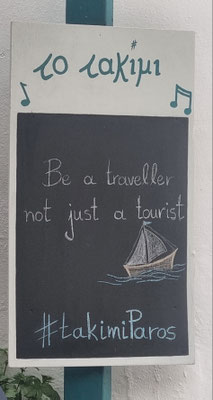 το τακίμι
Be a traveller
not just a tourist
#takimiParos